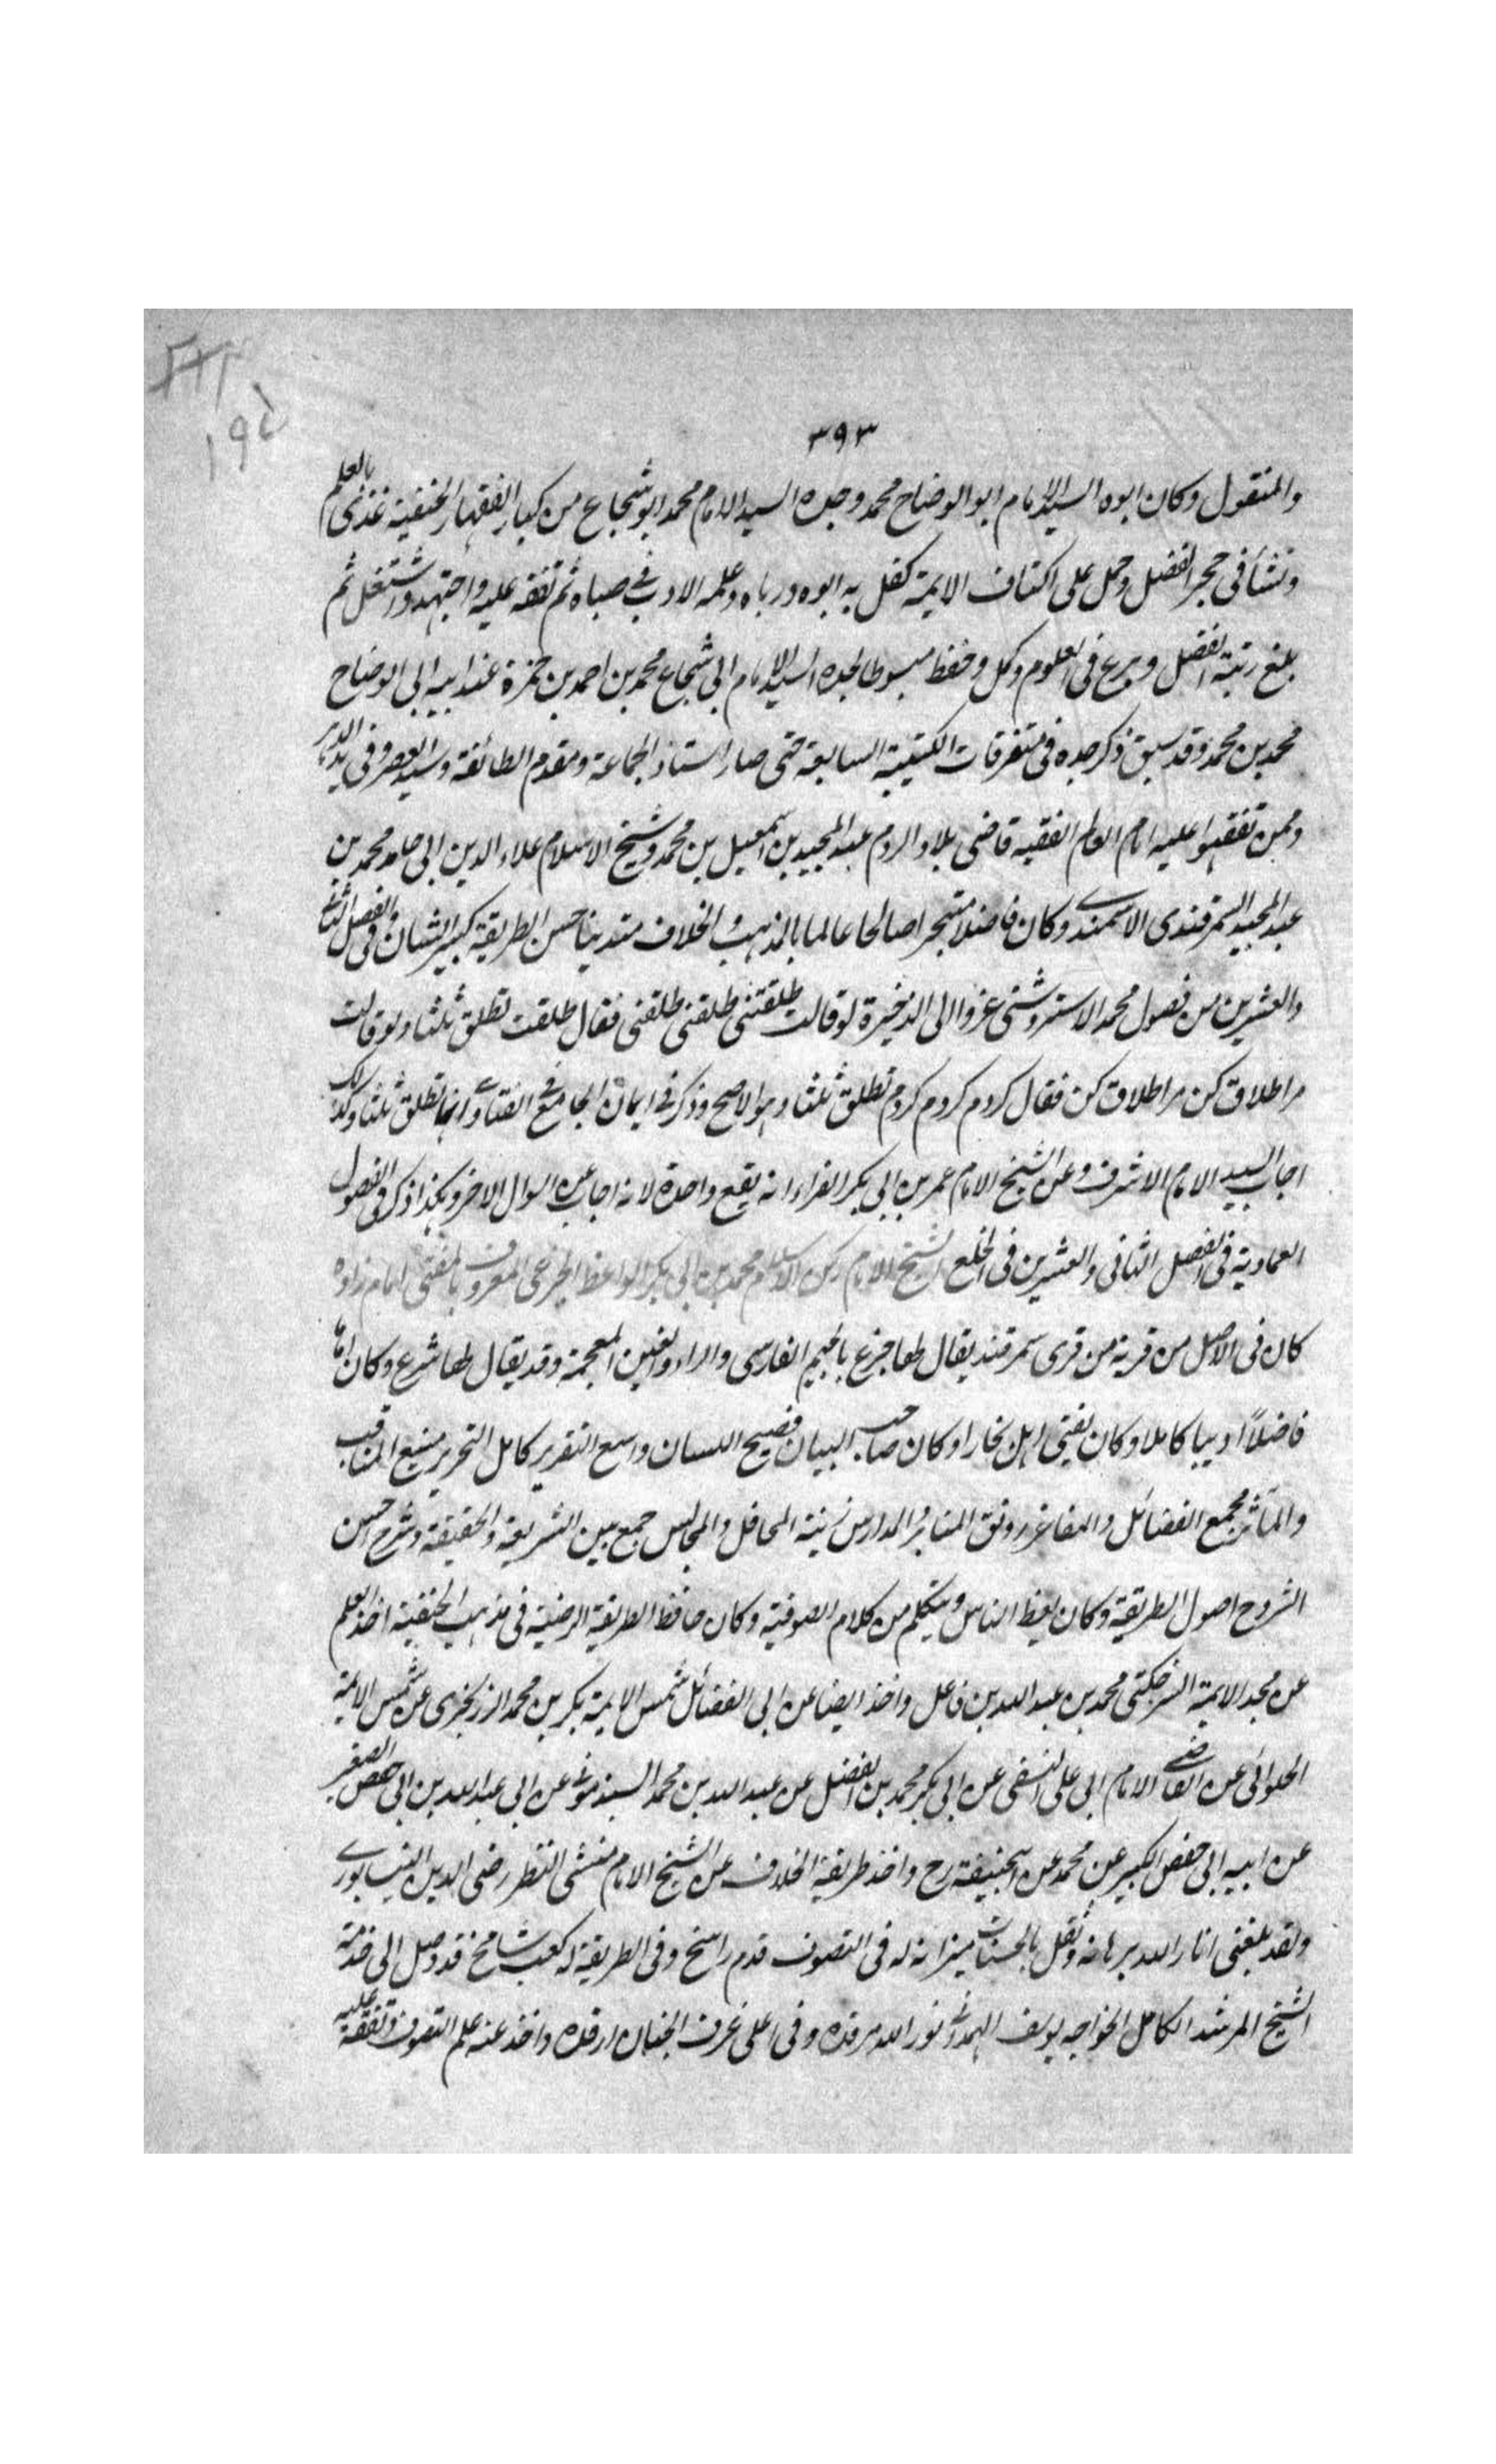 ٣٩٣
١٩٥
والمنقول وكان ابوه السيد الامام ابو الوضاح محمد وجده السيد الامام محمد ابو شجاع من كبار الفقهاء الحنفية غذى بالعلم
ونشأ فى حجر الفضل وحمل على اكتاف الايمة كفل به ابوه ورباه وعلمه الادب فى صباه ثم تفقه عليه واجتهد واشتغل ثم
بلغ رتبة الفضل وبرع فى العلوم وكمل وحفظ مبسوطا لجده السيد الامام ابى شجاع محمد بن احمد بن حمزة عند ابيه ابى الوضاح
محمد بن محمد وقد سبق ذكر جده فى متفرقات الكتيبة السابعة حتى صار استاذ الجماعة ومقدم الطائفة وسيد العصر وفى
وممن تفقهوا عليه امام العالم الفقيه قاضى بلاد الروم عبد المجيد بن اسمعيل بن محمد وشيخ الاسلام علاء الدين ابى حامد محمد بن
عبد المجيد السمرقندى الاسمندى وكان فاضلا متبحرا صالحا عالما بالمذهب والخلاف متدينا حسن الطريقة كبير الشان وفى الفصل الثانى
والعشرين من فصول محمد الاستروشنى عزوا الى الذخيرة لو قالت طلقنى طلقنى طلقنى فقال طلقت تطلق ثلثا ولو قالت
مرا طلاق كن مرا طلاق كن فقال كردم كردم كردم تطلق ثلثا وهو الاصح وذكر فى ايمان الجامع فى الفتاوى انها تطلق ثلثا وكذلك
اجاب السيد الامام الاشرف وعن الشيخ الامام عمر بن ابى بكر الفراء انه يقع واحدة لانه اجاب عن السوال الاخر وهكذا ذكر فى الفصول
العمادية فى الفصل الثانى والعشرين فى الخلع الشيخ الامام ركن الاسلام محمد بن ابى بكر الواعظ الجرغى المعروف بالمفتى امام زاده
كان فى الاصل من قرية من قرى سمرقند يقال لها جرغ بالجيم الفارسى والراء والغين المعجمة وقد يقال لها شرغ وكان اماما
فاضلاً اديبا كاملا وكان يفتى اهل بخارا وكان صاحب البيان فصيح اللسان واسع التقرير كامل التحرير منبع المناقب
والمآثر مجمع الفضائل والمفاخر رونق المنابر والمدارس زينة المحافل والمجالس جمع بين الشريعة والحقيقة وشرح احسن
الشروح اصول الطريقة وكان يعظ الناس ويتكلم من كلام الصوفية وكان حافظ الطريقة الرضية فى مذهب الحنفية اخذ العلم
عن مجد الايمة السرخكتى محمد بن عبد الله بن فاعل واخذ ايضا عن ابى الفضائل شمس الايمة بكر بن محمد الزرنجرى عن شمس الايمة
الحلوائى عن القاضى الامام ابى على النسفى عن ابى بكر محمد بن الفضل عن عبد الله بن محمد السبذمونى عن ابى عبد الله بن ابى حفص الصغير
عن ابيه ابى حفص الكبير عن محمد عن ابيحنيفة رح واخذ طريقة الخلاف عن الشيخ الامام منشى النظر رضى الدين النيسابورى
ولقد بلغنى انار الله برهانه وثقل بالحسنات ميزانه له فى التصوف قدم راسخ وفى الطريقة له كعب شامخ قد وصل الى خدمة
الشيخ المرشد الكامل الخواجه يوسف الهمدانى نور الله مرقده وفى اعلى غرف الجنان ارقده واخذ عنه علم التصوف وتفقه عليه